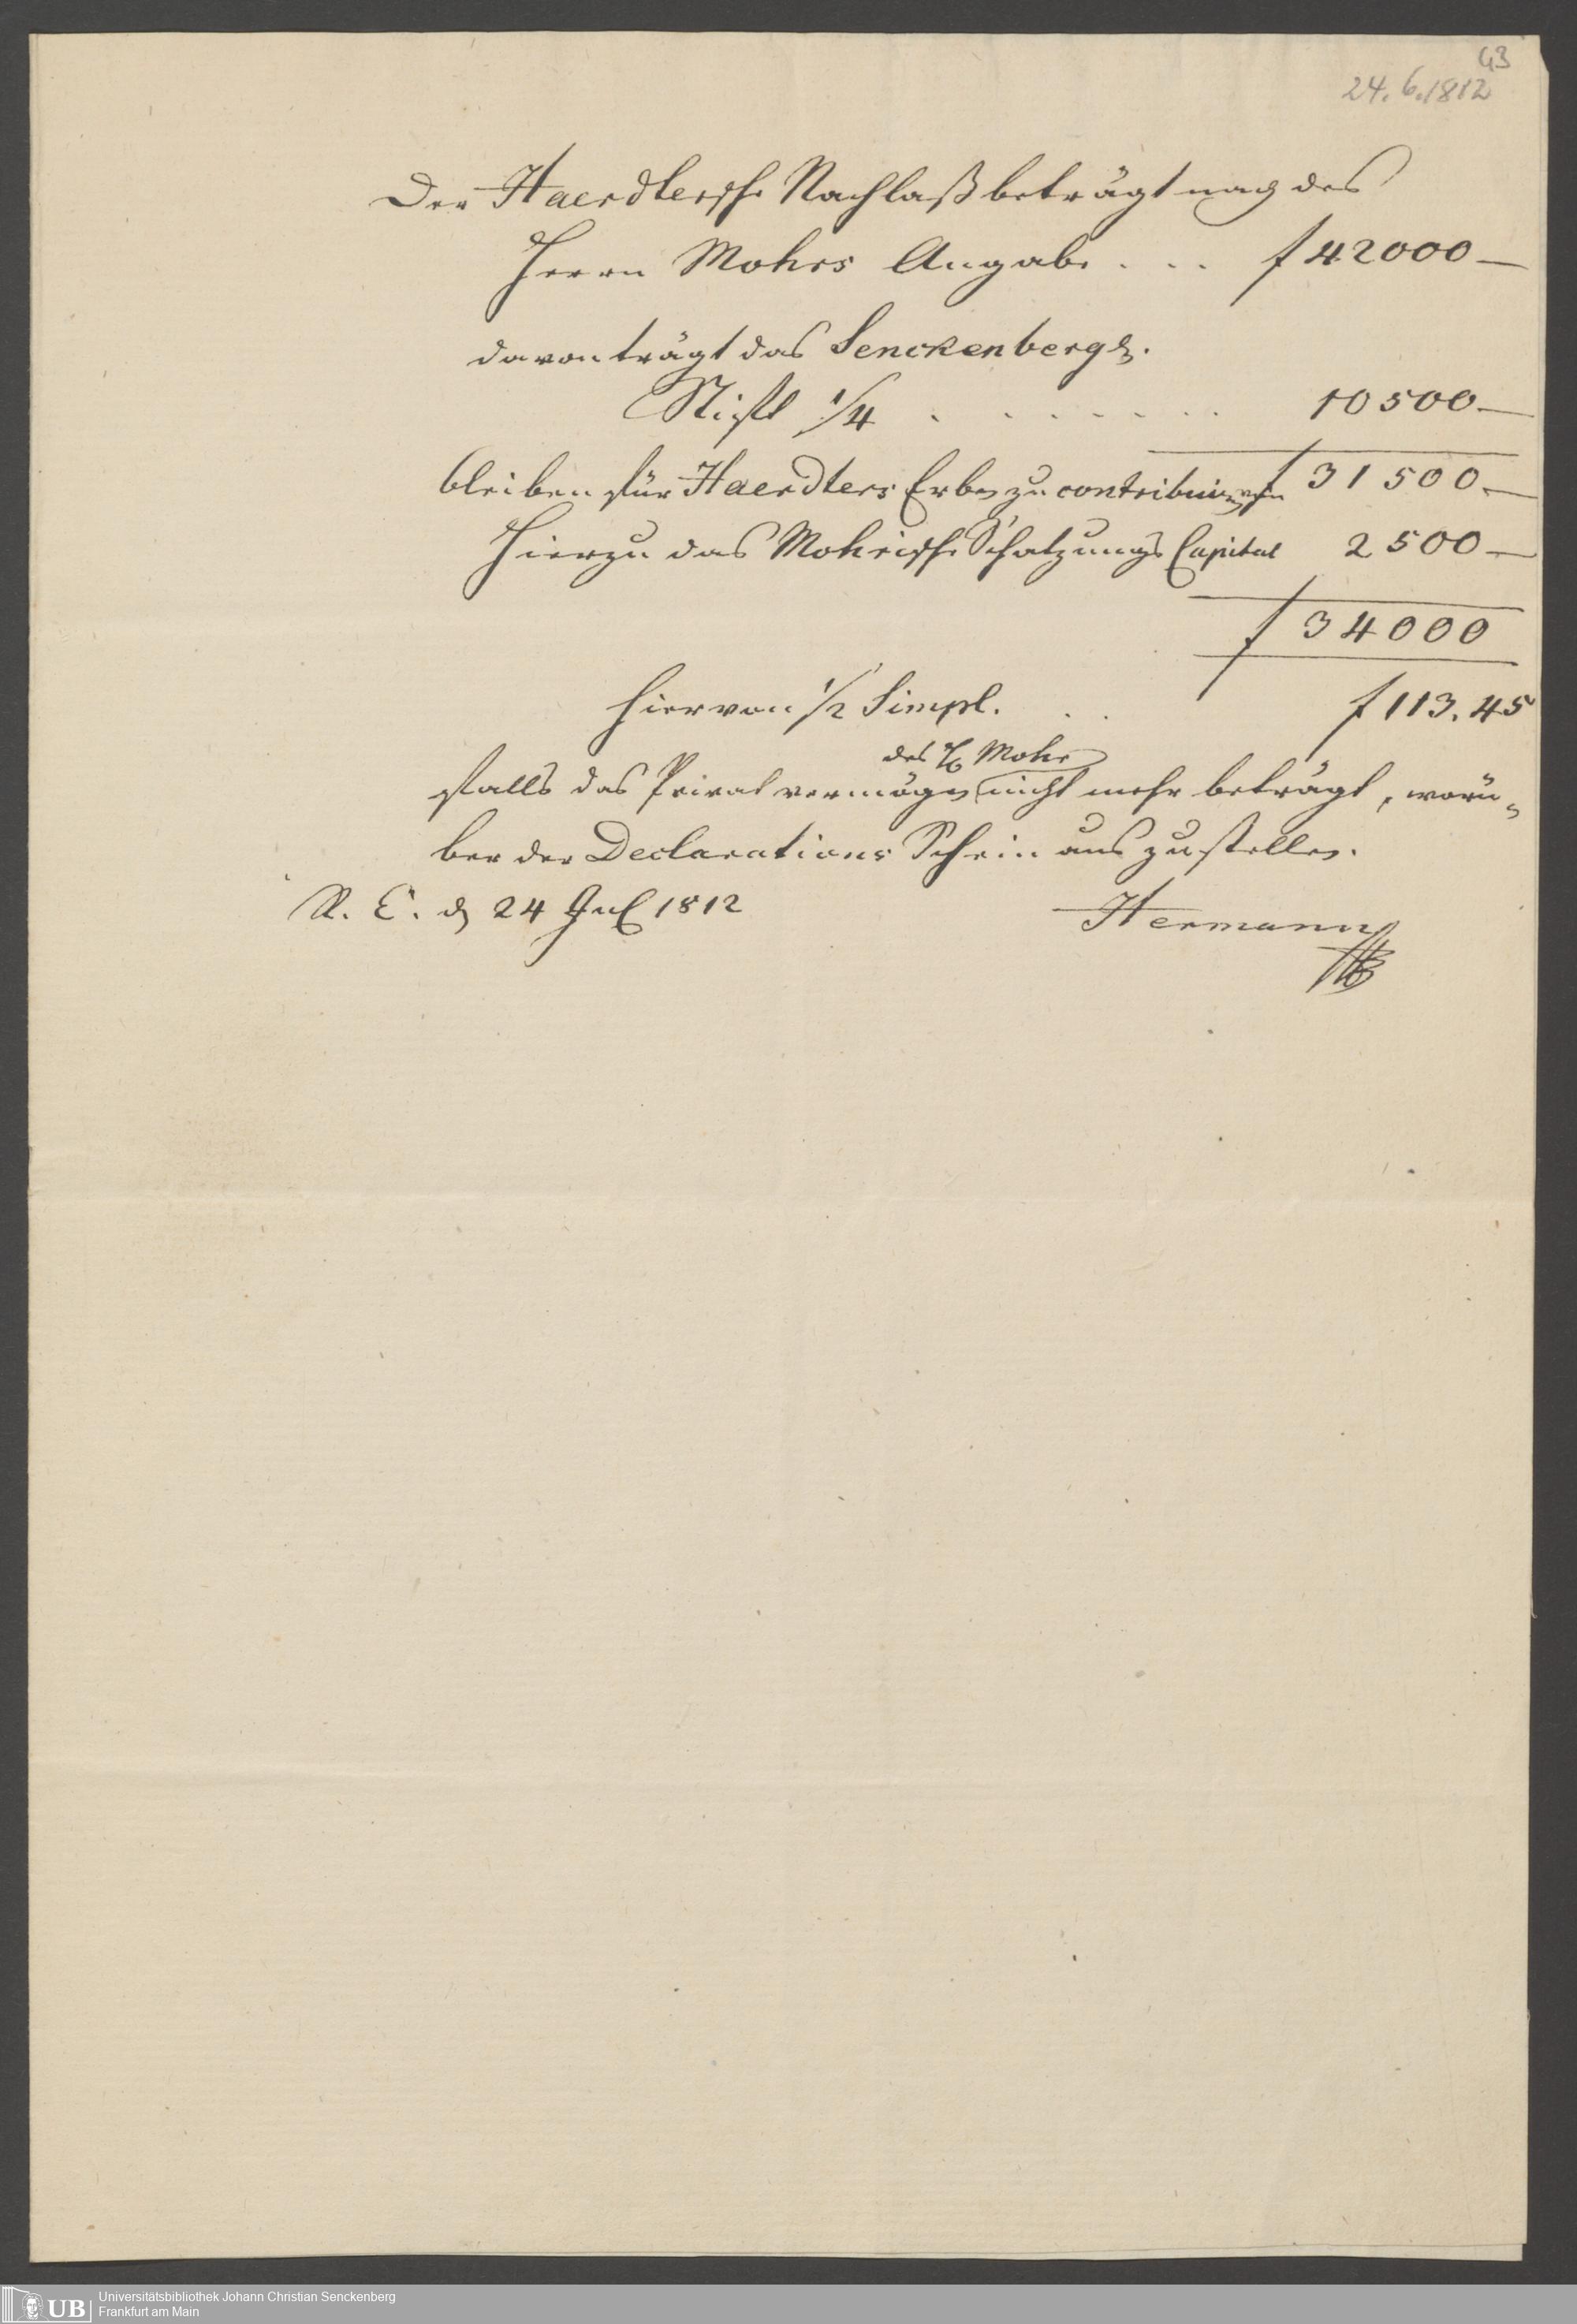 43
24. 6. 1812
Der Haerdtersche Nachlaß beträgt nach des
Herrn Mohrs Angabe . . . f 42000 —
davon trägt das Senckenberg.
Stift 1/4 . . . . . . . 10500 —
bleiben für Haerdters Erben zu contribuiren f 31500 —
Hierzu das Mohrische Schatzungs Capital 2500 —
f 34000
hiervon 1/2 Simpl. . . f 113.45
des H. Mohr
falls das Privatvermögen nicht mehr beträgt, worü-
ber der Declarations Schein auszustellen.
R. C. d 24 Jul 1812 Hermann
UB Universitätsbibliothek Johann Christian Senckenberg
Frankfurt am Main